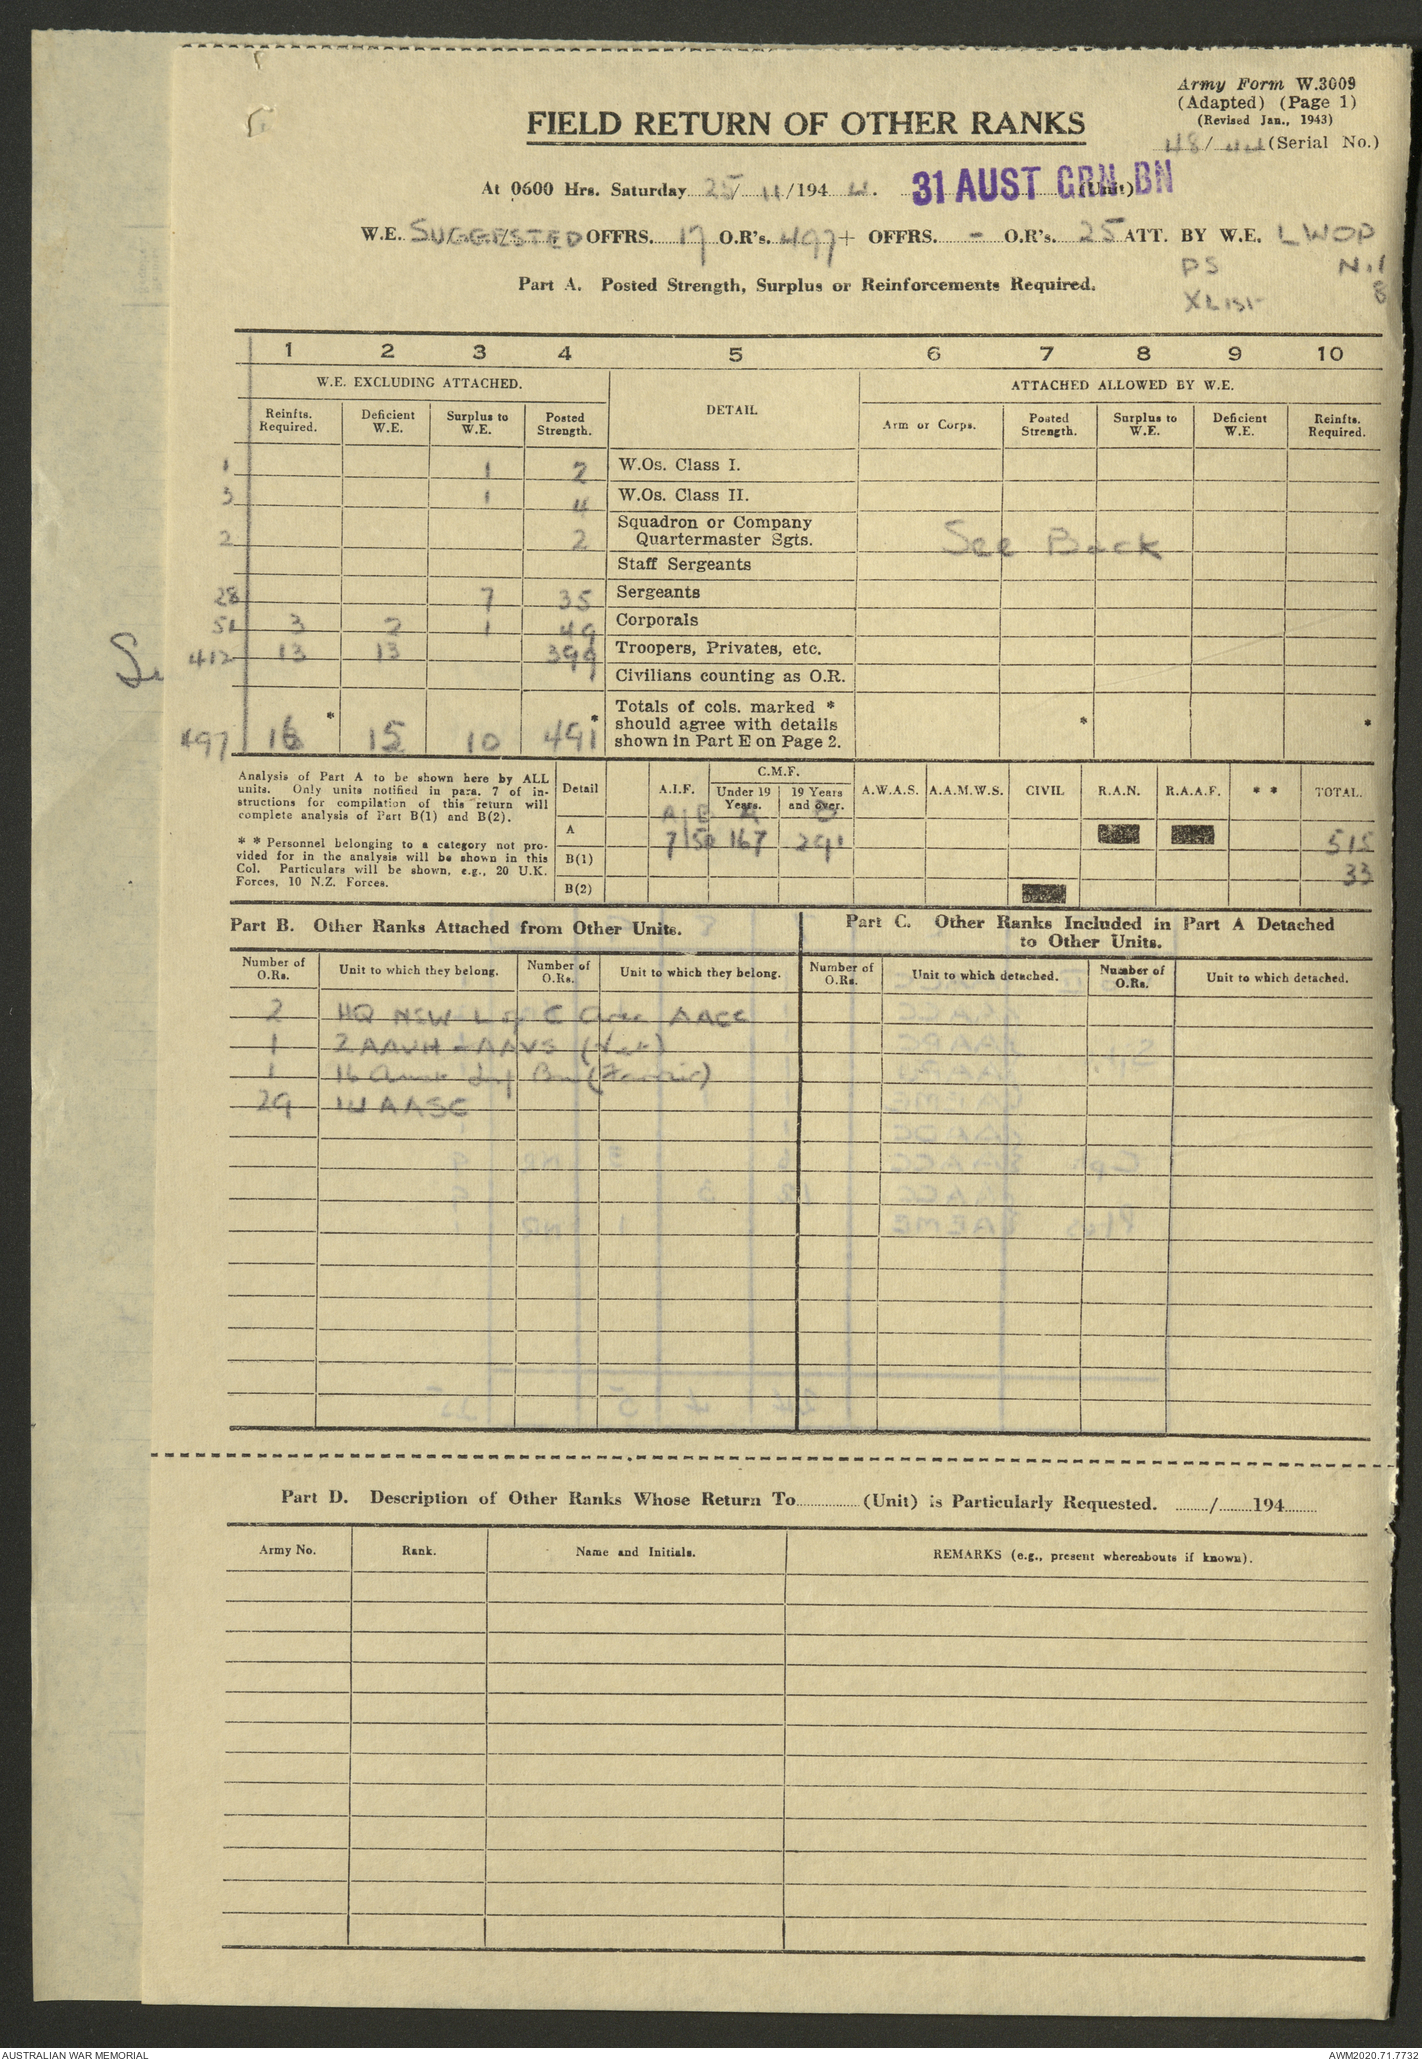 Army Form W.3009
(Adapted) (Page 1)
(Revised Jan., 1943)
48/44 (Serial No.)
FIELD RETURN OF OTHER RANKS
At 0600 Hrs. Saturday 25/11/1944. 31 AUST GRN BN (Unit)
W.E. SUGGESTED OFFRS. 17 O.R's. 497 + OFFRS. - O.R's. 25 ATT. BY W.E. LWOP
PS Nil
X LIST 8
Part A. Posted Strength, Surplus or Reinforcements Required.
1 2 3 4 5 6 7 8 9 10
W.E. EXCLUDING ATTACHED. DETAIL ATTACHED ALLOWED BY W.E.
Reinfts. Required. Deficient W.E. Surplus to W.E. Posted Strength. Arm or Corps. Posted Strength. Surplus to W.E. Deficient W.E. Reinfts. Required.
1 1 2 W.Os. Class I.
3 1 4 W.Os. Class II.
2 2 Squadron or Company Quartermaster Sgts. See Back
Staff Sergeants
28 7 35 Sergeants
51 3 2 1 49 Corporals
412 13 13 399 Troopers, Privates, etc.
Civilians counting as O.R.
497 16 * 15 10 491 * Totals of cols. marked * should agree with details shown in Part E on Page 2. * *
Analysis of Part A to be shown here by ALL units. Only units notified in para. 7 of instructions for compilation of this return will complete analysis of Part B(1) and B(2).
* * Personnel belonging to a category not provided for in the analysis will be shown in this Col. Particulars will be shown, e.g., 20 U.K. Forces, 10 N.Z. Forces.
Detail A.I.F. C.M.F. Under 19 Years. 19 Years and over. A.W.A.S. A.A.M.W.S. CIVIL R.A.N. R.A.A.F. * * TOTAL.
A B A B
A 7 50 167 291 515
B(1) 33
B(2)
Part B. Other Ranks Attached from Other Units.
Part C. Other Ranks Included in Part A Detached to Other Units.
Number of O.Rs. Unit to which they belong. Number of O.Rs. Unit to which they belong. Number of O.Rs. Unit to which detached. Number of O.Rs. Unit to which detached.
2 HQ NSW L of C Area AACC
1 2 AAVH - AAVS (Vet)
1 16 Aust Inf Bn (Farrier)
29 AASC
Part D. Description of Other Ranks Whose Return To (Unit) is Particularly Requested. / 194
Army No. Rank. Name and Initials. REMARKS (e.g., present whereabouts if known).
AUSTRALIAN WAR MEMORIAL AWM2020.71.7732